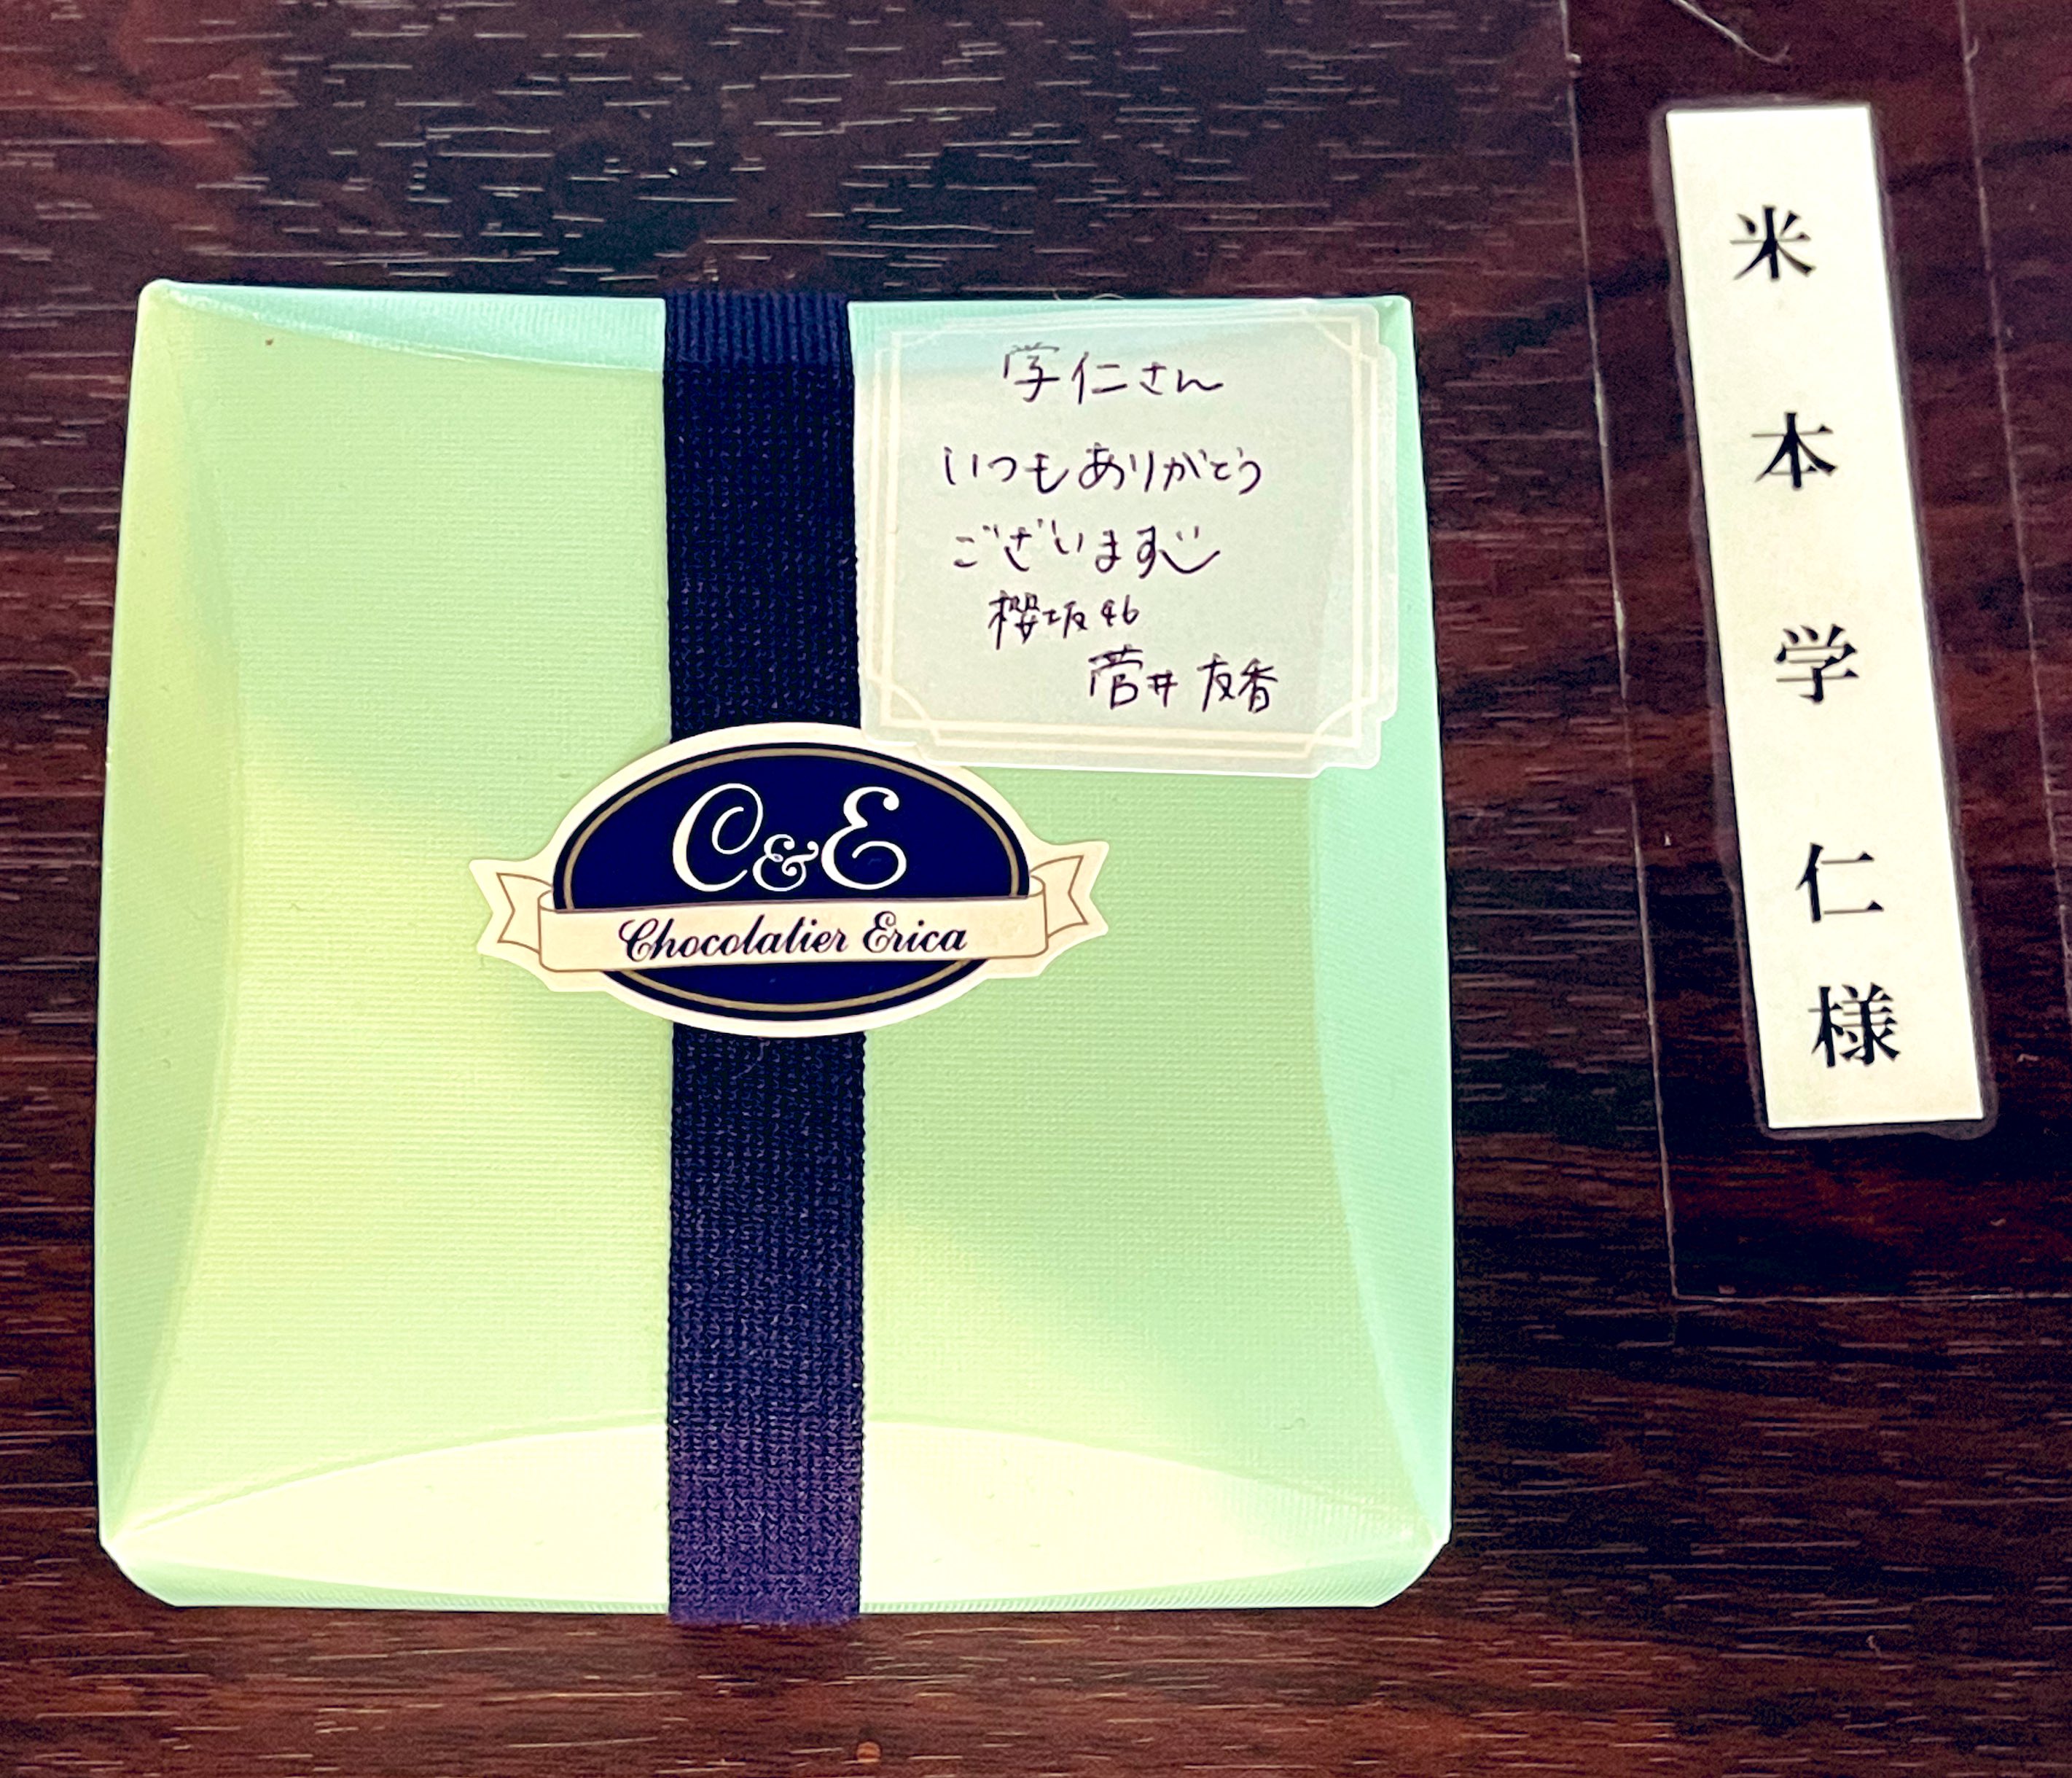 学仁さん
いつもありがとう
ございます
櫻坂46
菅井友香
C&E
Chocolatier Erica
米本学仁様